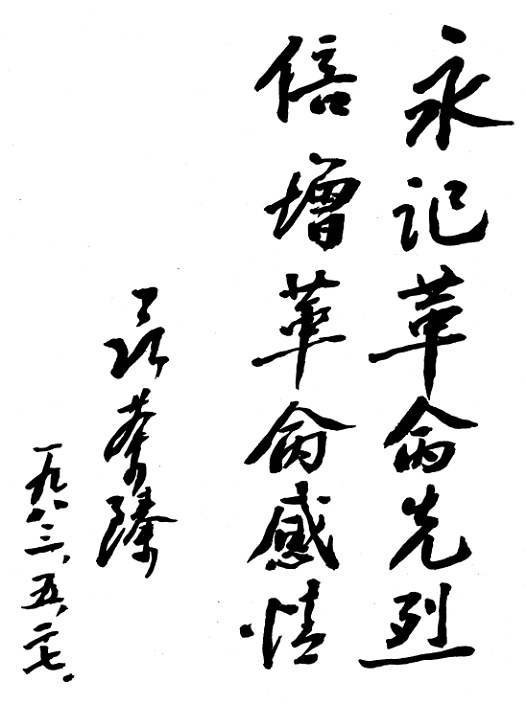 永记革命先烈
倍增革命感情
聂荣臻
一九八三、五、二七.